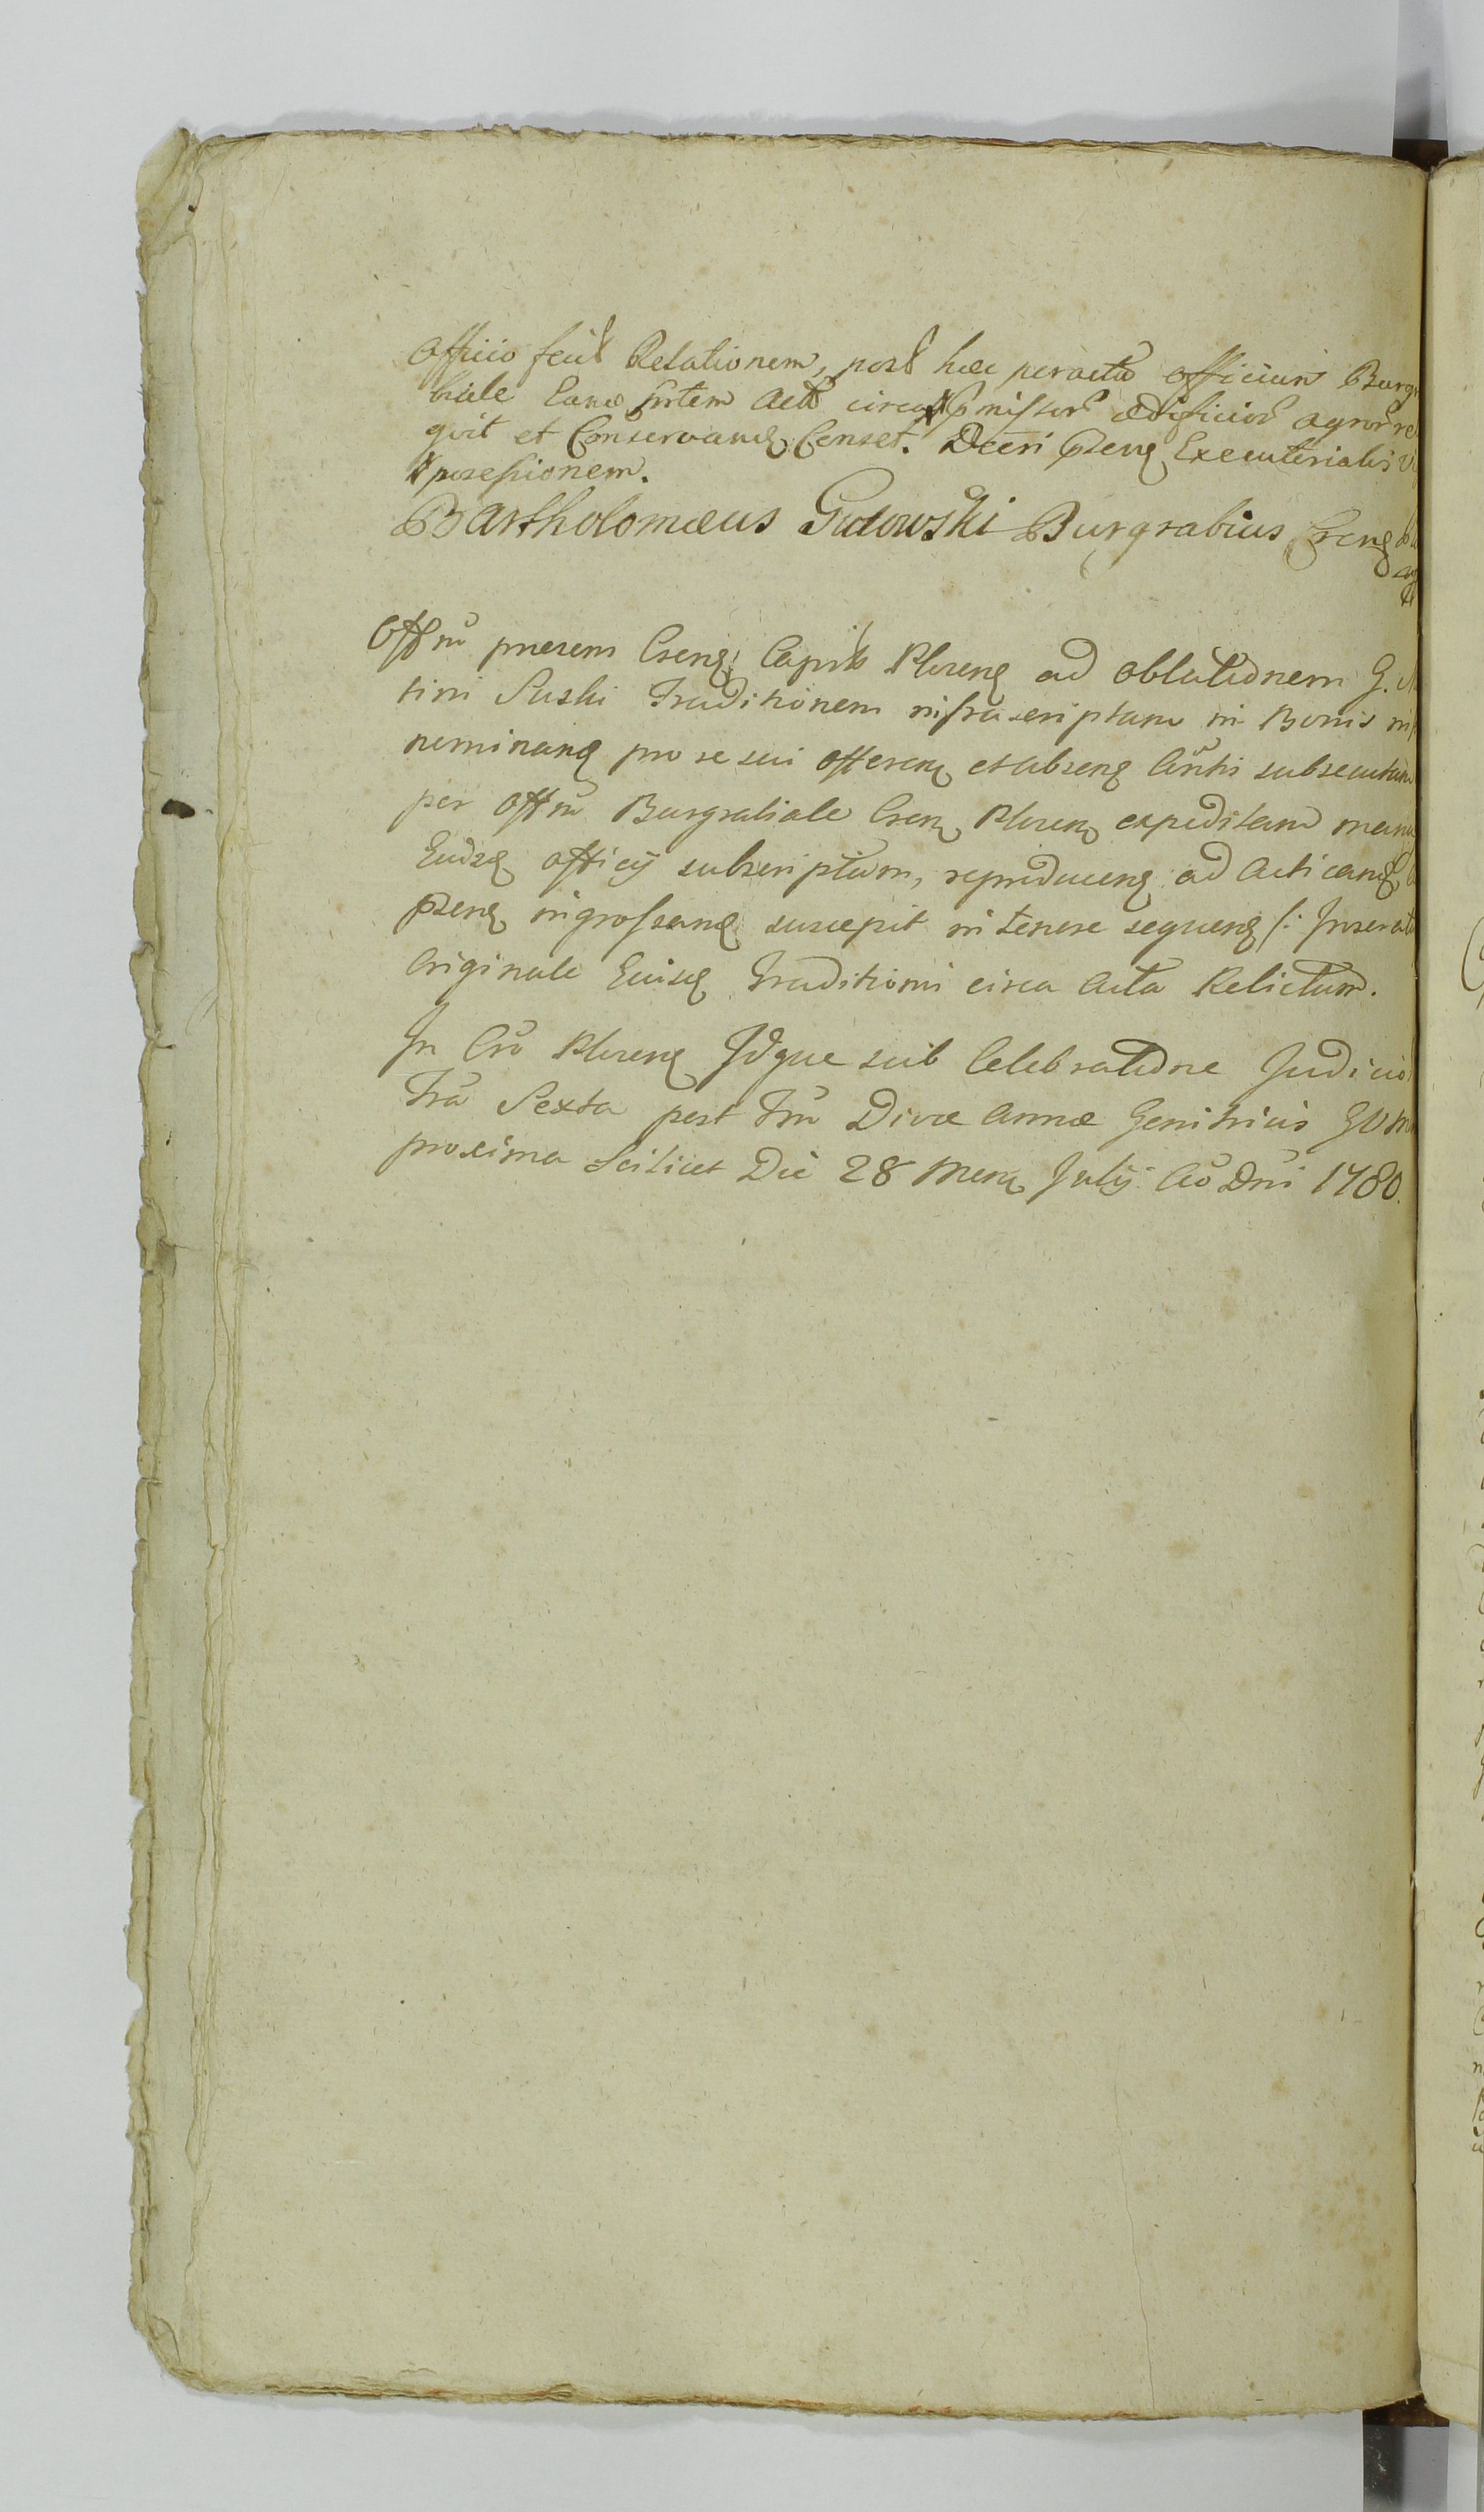 Officio fecit Relationem, post hæc peracta officium Burg
biale Eand Prtem Actū circa pmissor ædificior agror re
qvit et Conservand Censet. Decri Psens Executorialis
possessionem.
Bartholomæus Gutowski Burgrabius Crens
Offm præsens Crense Capitle Plocens ad oblationem G.
tini Suski Traditionem infrascriptam in Bonis
nominand pro se sui offerens et absens Anthi subsecutam
per Offm Burgrabiale Crens Plocens expeditam manu
Eiusd officij subscriptam, reproducens ad Acticand
psens ingrossand suscepit in tenore sequens /: Inserat
Originale Eiusd Traditionis circa Acta Relictum.
In Crō Plocens Idque sub Celebratione Judicio
Fra Sexta post Fm Divæ Annæ Genitricis
proxima Scilicet Die 28 Mens Julij Aō Dni 1780.